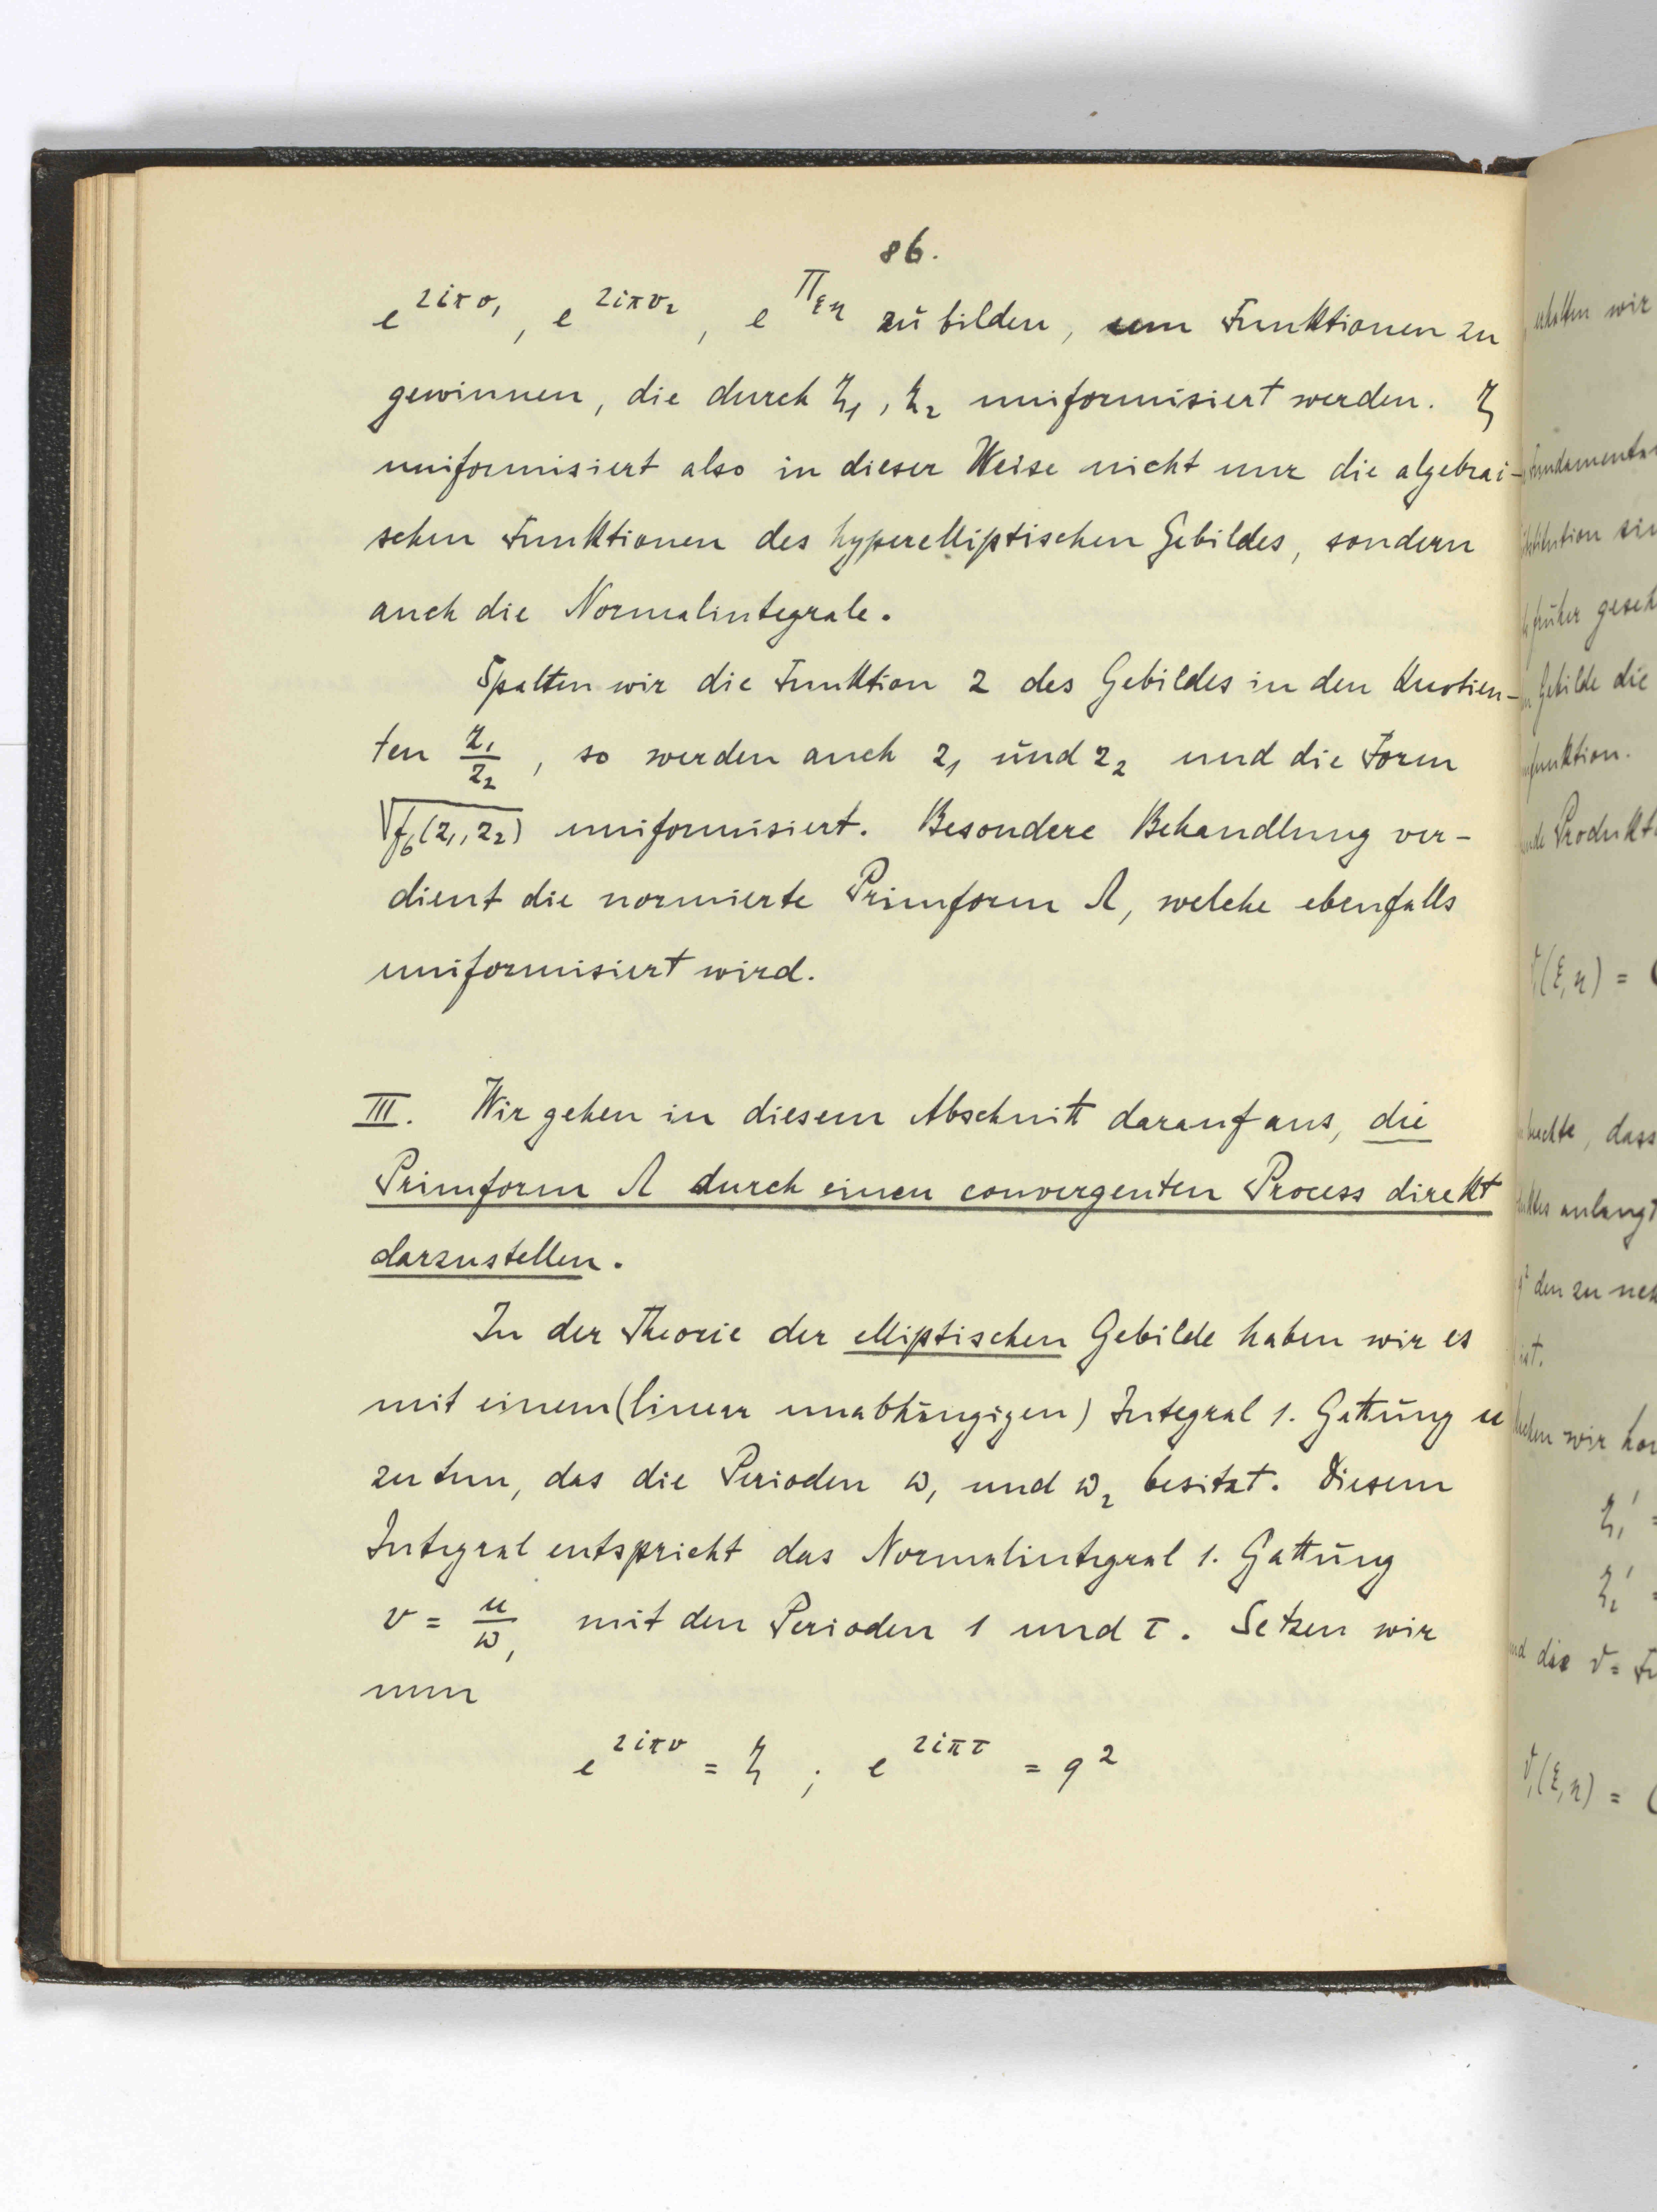 86.
e^{2iπv₁}, e^{2iπv₂}, e^{Π_{ξη}} zu bilden, um Funktionen zu
gewinnen, die durch ζ₁, ζ₂ uniformisiert werden. ζ
uniformisiert also in dieser Weise nicht nur die algebrai-
schen Funktionen des hyperelliptischen Gebildes, sondern
auch die Normalintegrale.
Spalten wir die Funktion z des Gebildes in den Quotien-
ten z₁/z₂, so werden auch z₁ und z₂ und die Form
√f₆(z₁, z₂) uniformisiert. Besondere Behandlung ver-
dient die normierte Primform Λ, welche ebenfalls
uniformisiert wird.
III. Wir gehen in diesem Abschnitt darauf aus, die
Primform Λ durch einen convergenten Process direkt
darzustellen.
In der Theorie der elliptischen Gebilde haben wir es
mit einem (linear unabhängigen) Integral 1. Gattung u
zu tun, das die Perioden ω₁ und ω₂ besitzt. Diesem
Integral entspricht das Normalintegral 1. Gattung
v = u/ω₁ mit den Perioden 1 und τ. Setzen wir
nun
e^{2iπv} = ζ ; e^{2iπτ} = q²
erhalten wir
Fundamental
früher geseh
Gebilde die
funktion.
Produkt
(ξ, η) =
dass
anlangt
den zu
ist.
wir
ζ₁' =
ζ₂' =
die ϑ-Fu
ϑ₁(ξ, η) =